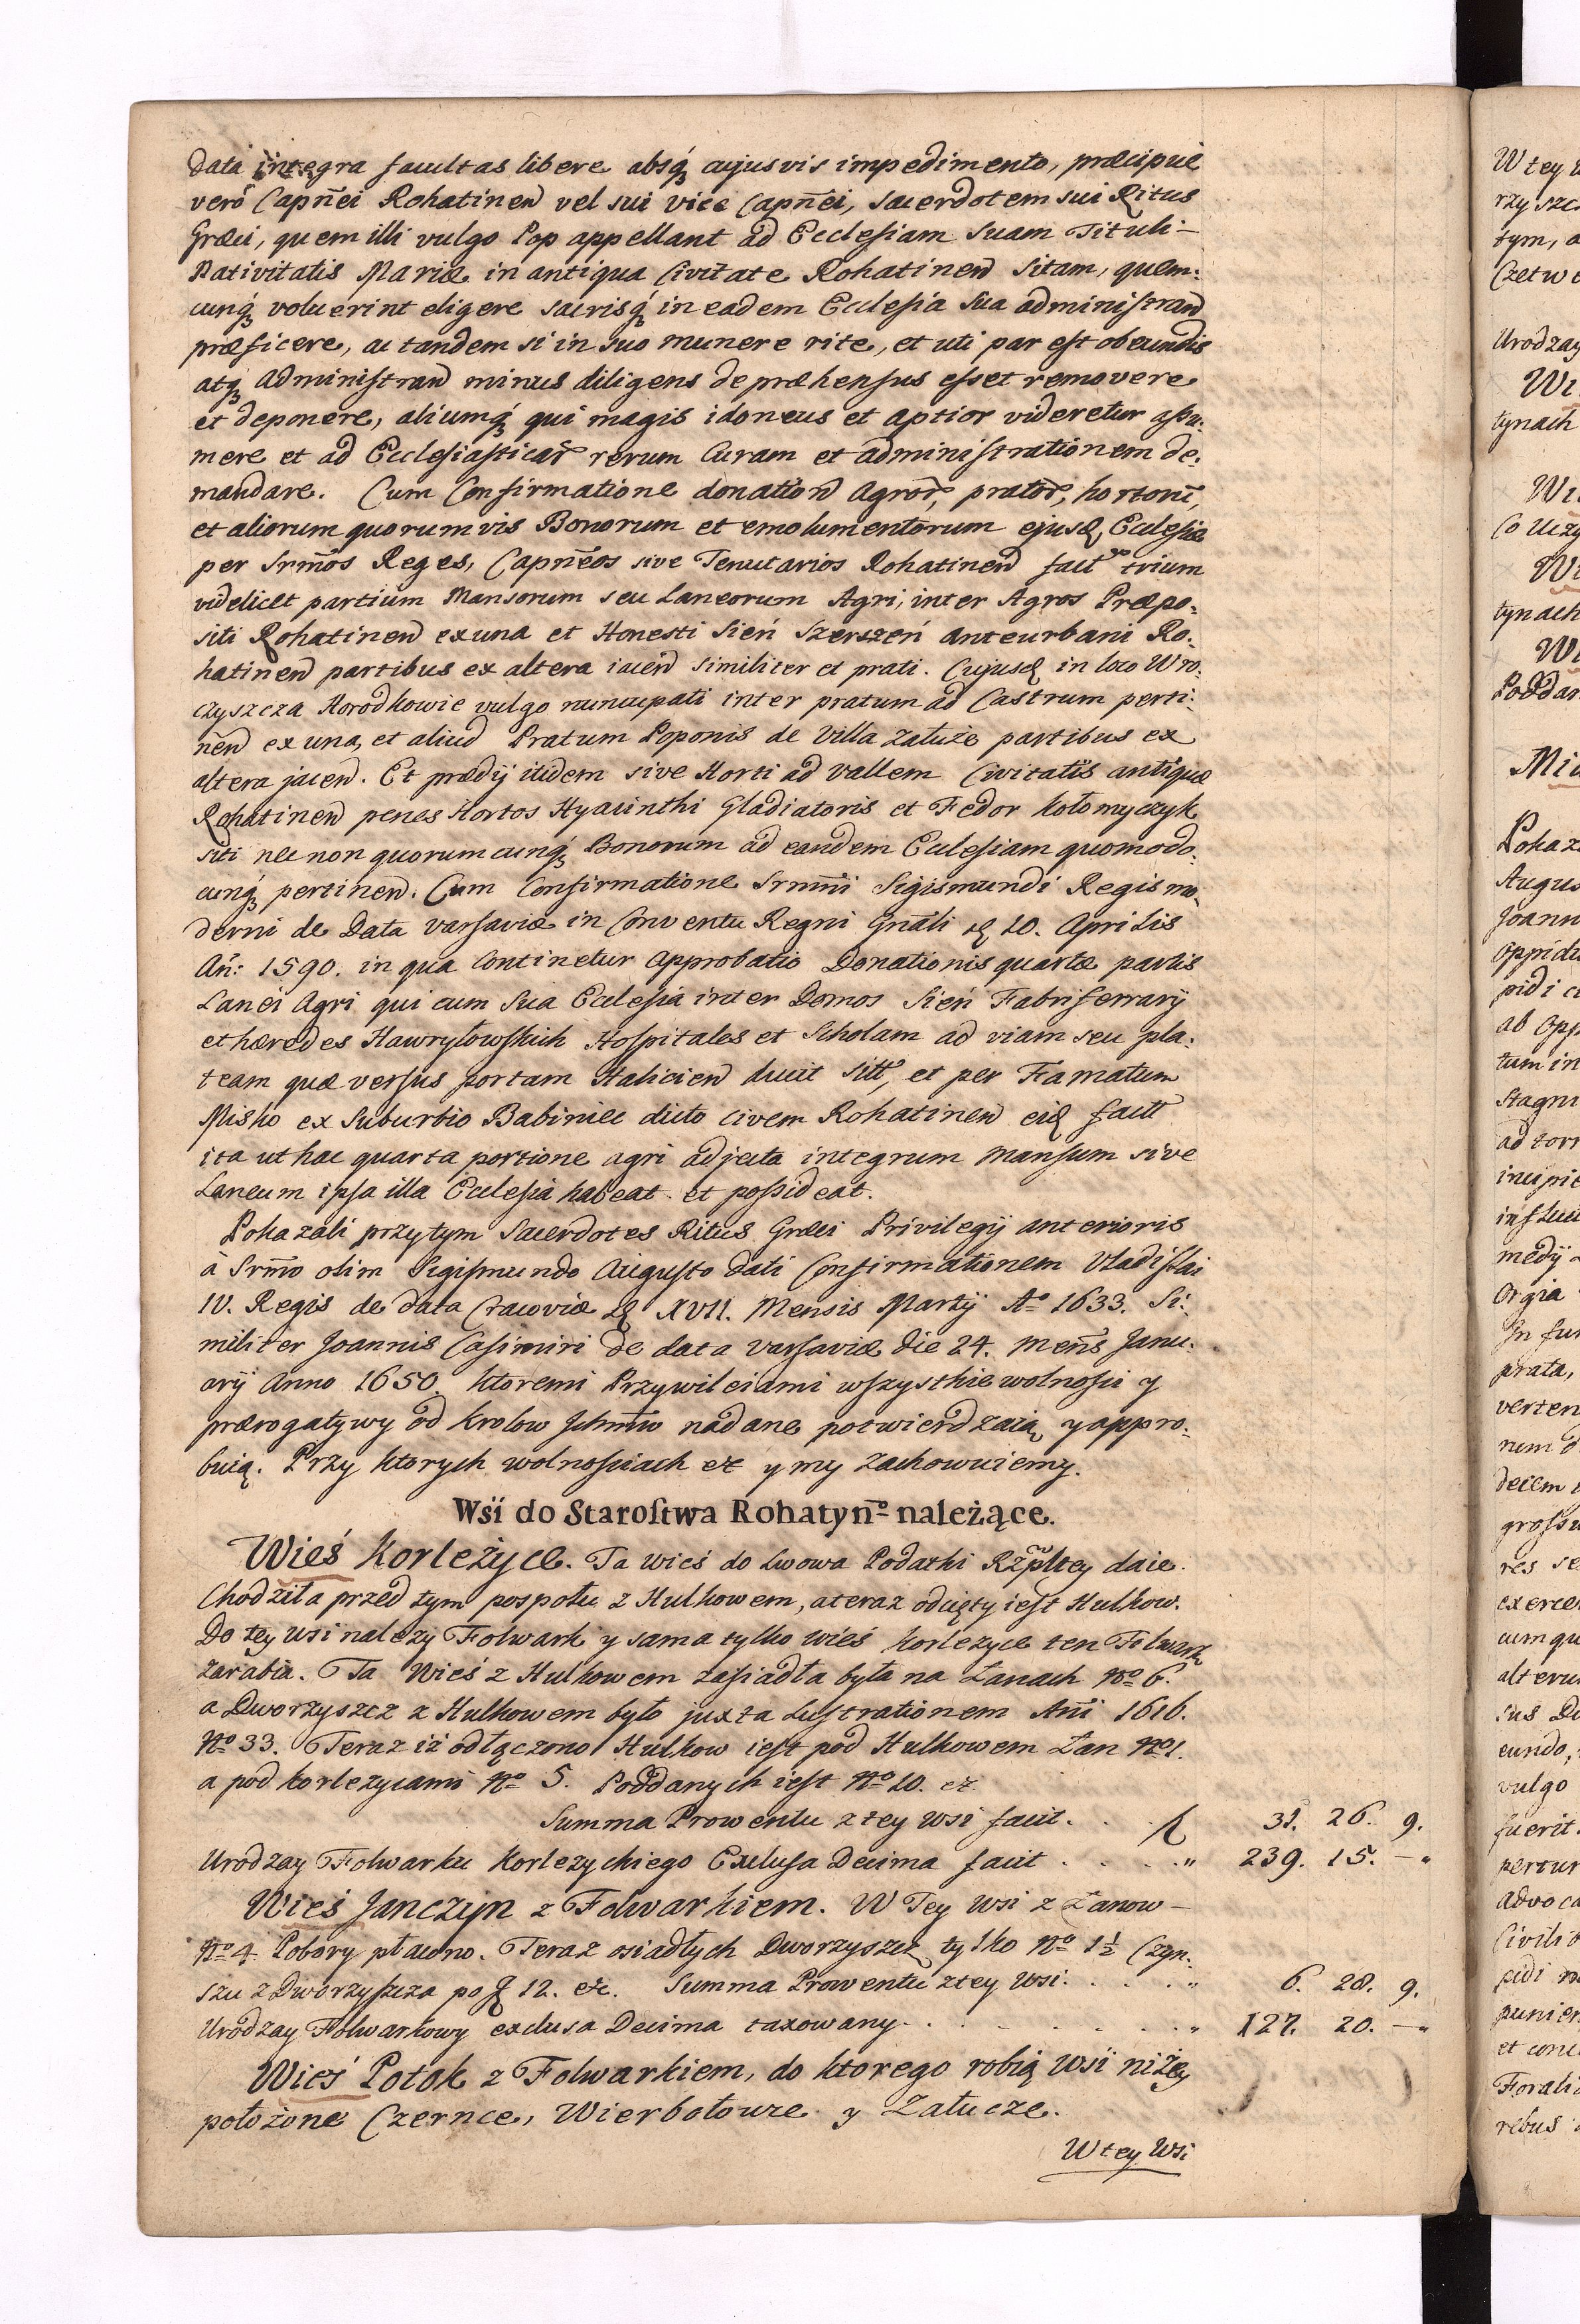 data integra facultas libere absq́ꝫ cujusvis impedimento, præcipue
verò Capn̄ei Rohatinen̄ vel sui vice Capn̄ei, sacerdotem sui Ritus
Græci, quem illi vulgo Pop appellant ad Ecclesiam suam Tituli –
Nativitatis Mariæ in antiqua Civitate Rohatinen̄ sitam, quem:
cunq́ꝫ voluerint eligere sacrisq́ꝫ in eadem Ecclesia sua administran̄
præficere, ac tandem si in suo munere rite, et uti par est obeundis
atqꝫ administran̄ minus diligens depræhensus esset removere
et deponere, aliumq́ꝫ qui magis idoneus et aptior videretur assu:
mere et ad Ecclesiasticar̄ rerum Curam et administrationem de:
mandare. Cum Confirmatione donation̄ agror̄, prator̄, hortorū,
et aliorum quorumvis Bonorum et emolumentorum ejusd̨ Ecclesiæ
per Srm̄os Reges, Capn̄eos sive Tenutarios Rohatinen̄ fact̄ trium
videlicet partium Mansorum seu Laneorum Agri, inter Agros Præpo:
siti Rohatinen̄ ex una et Honesti Sień Szerszeń anteurbani Ro:
hatinen̄ partibus ex altera iacen̄ similiter et prati. Cujusd̨ in loco Wro:
czyszcza Horodkowie vulgo nuncupati inter pratum ad Castrum perti:
nen̄ ex una, et aliud Pratum Poponis de Villa Załuże partibus ex
altera jacen̄. Et prædij itidem sive Horti ad vallem Civitatis antiquæ
Rohatinen̄ penes Hortos Hyacinthi Gladiatoris et Fedor Kołomyczyk
siti nec non quorumcunq́ꝫ Bonorum ad eandem Ecclesiam quomodo:
cunq́ꝫ pertinen̄. Cum Confirmatione Srm̄i Sigismundi Regis mo:
derni de Data Varsaviæ in Conventu Regni Gn̄ali d̨ 10. Aprilis
An̄: 1590. in qua continetur approbatio Donationis quartæ partis
Lanei Agri qui cum sua Ecclesia inter Domos Sień Fabri ferrarij
et hæredes Hawryłowskich Hospitales et Scholam ad viam seu pla:
team quæ versus portam Halicien̄ ducit sitt, et per Famatum
Misko ex Suburbio Babiniec dicto civem Rohatinen̄ eid̨ factt
ita ut hac quarta portione agri adjecta integrum mansum sive
Laneum ipsa illa Ecclesia habeat et possideat.
Pokazali przytym Sacerdotes Ritus Græci Privilegij anterioris
à Srm̄o olim Sigismundo Augusto dati Confirmationem Vladislai
IV. Regis de data Cracoviæ d̨ XVII. Mensis Martij Aº 1633. Si:
militer Joannis Casimiri de data Varsaviæ die 24. mens̄ Janu:
arij Anno 1650. ktoremi Przywileiami wszystkie wolnosci y
prærogatywy od Krolow Jchm̄w nadane potwierdzaią y appro:
buią. Przy ktorych wolnosciach ez y my zachowuiemy.
Wsi do Starostwa Rohatyn̄º należące.
Wieś Korleżyce. Ta wieś do Lwowa Podatki Rzp̄ltey daie.
Chodziła przed tym pospołu z Hulkowem, a teraz odcięty iest Hulkow.
Do tey wsi nalezy Folwark y sama tylko wieś Korlezyce ten Folwark
zarabia. Ta Wieś z Hulkowem zasiadła była na Łanach Nº 6.
a Dworzyszcz z Hulkowem było juxta Lustrationem An̄i 1616.
Nº 33. Teraz iż odłączono Hulkow iest pod Hulkowem Łan Nº 1.
a pod Korlezycami Nº 5. Poddanych iest Nº 10. ez.
Summa Prowentu z tey wsi facit. . . ƒ 31. 26. 9.
Urodzay Folwarku Korlezyckiego Exclusa Decima facit . . . . " 239. 15. – "
Wieś Janczyn z Folwarkiem. W Tey Wsi z Łanow –
Nº 4. Pobory płacono. Teraz osiadłych Dworzyszcz tylko Nº 1½ Czyn:
szu z Dworzyszcza po ƒ 12. ez. Summa Prowentu z tey wsi. . . . " 6. 28. 9.
Urodzay Folwarkowy exclusa Decima taxowany . . . . . . . " 127. 20. – "
Wieś Potok z Folwarkiem, do ktorego robią wsi niżey
położone Czernce, Wierbołowze y Załucze.
W tey Wsi